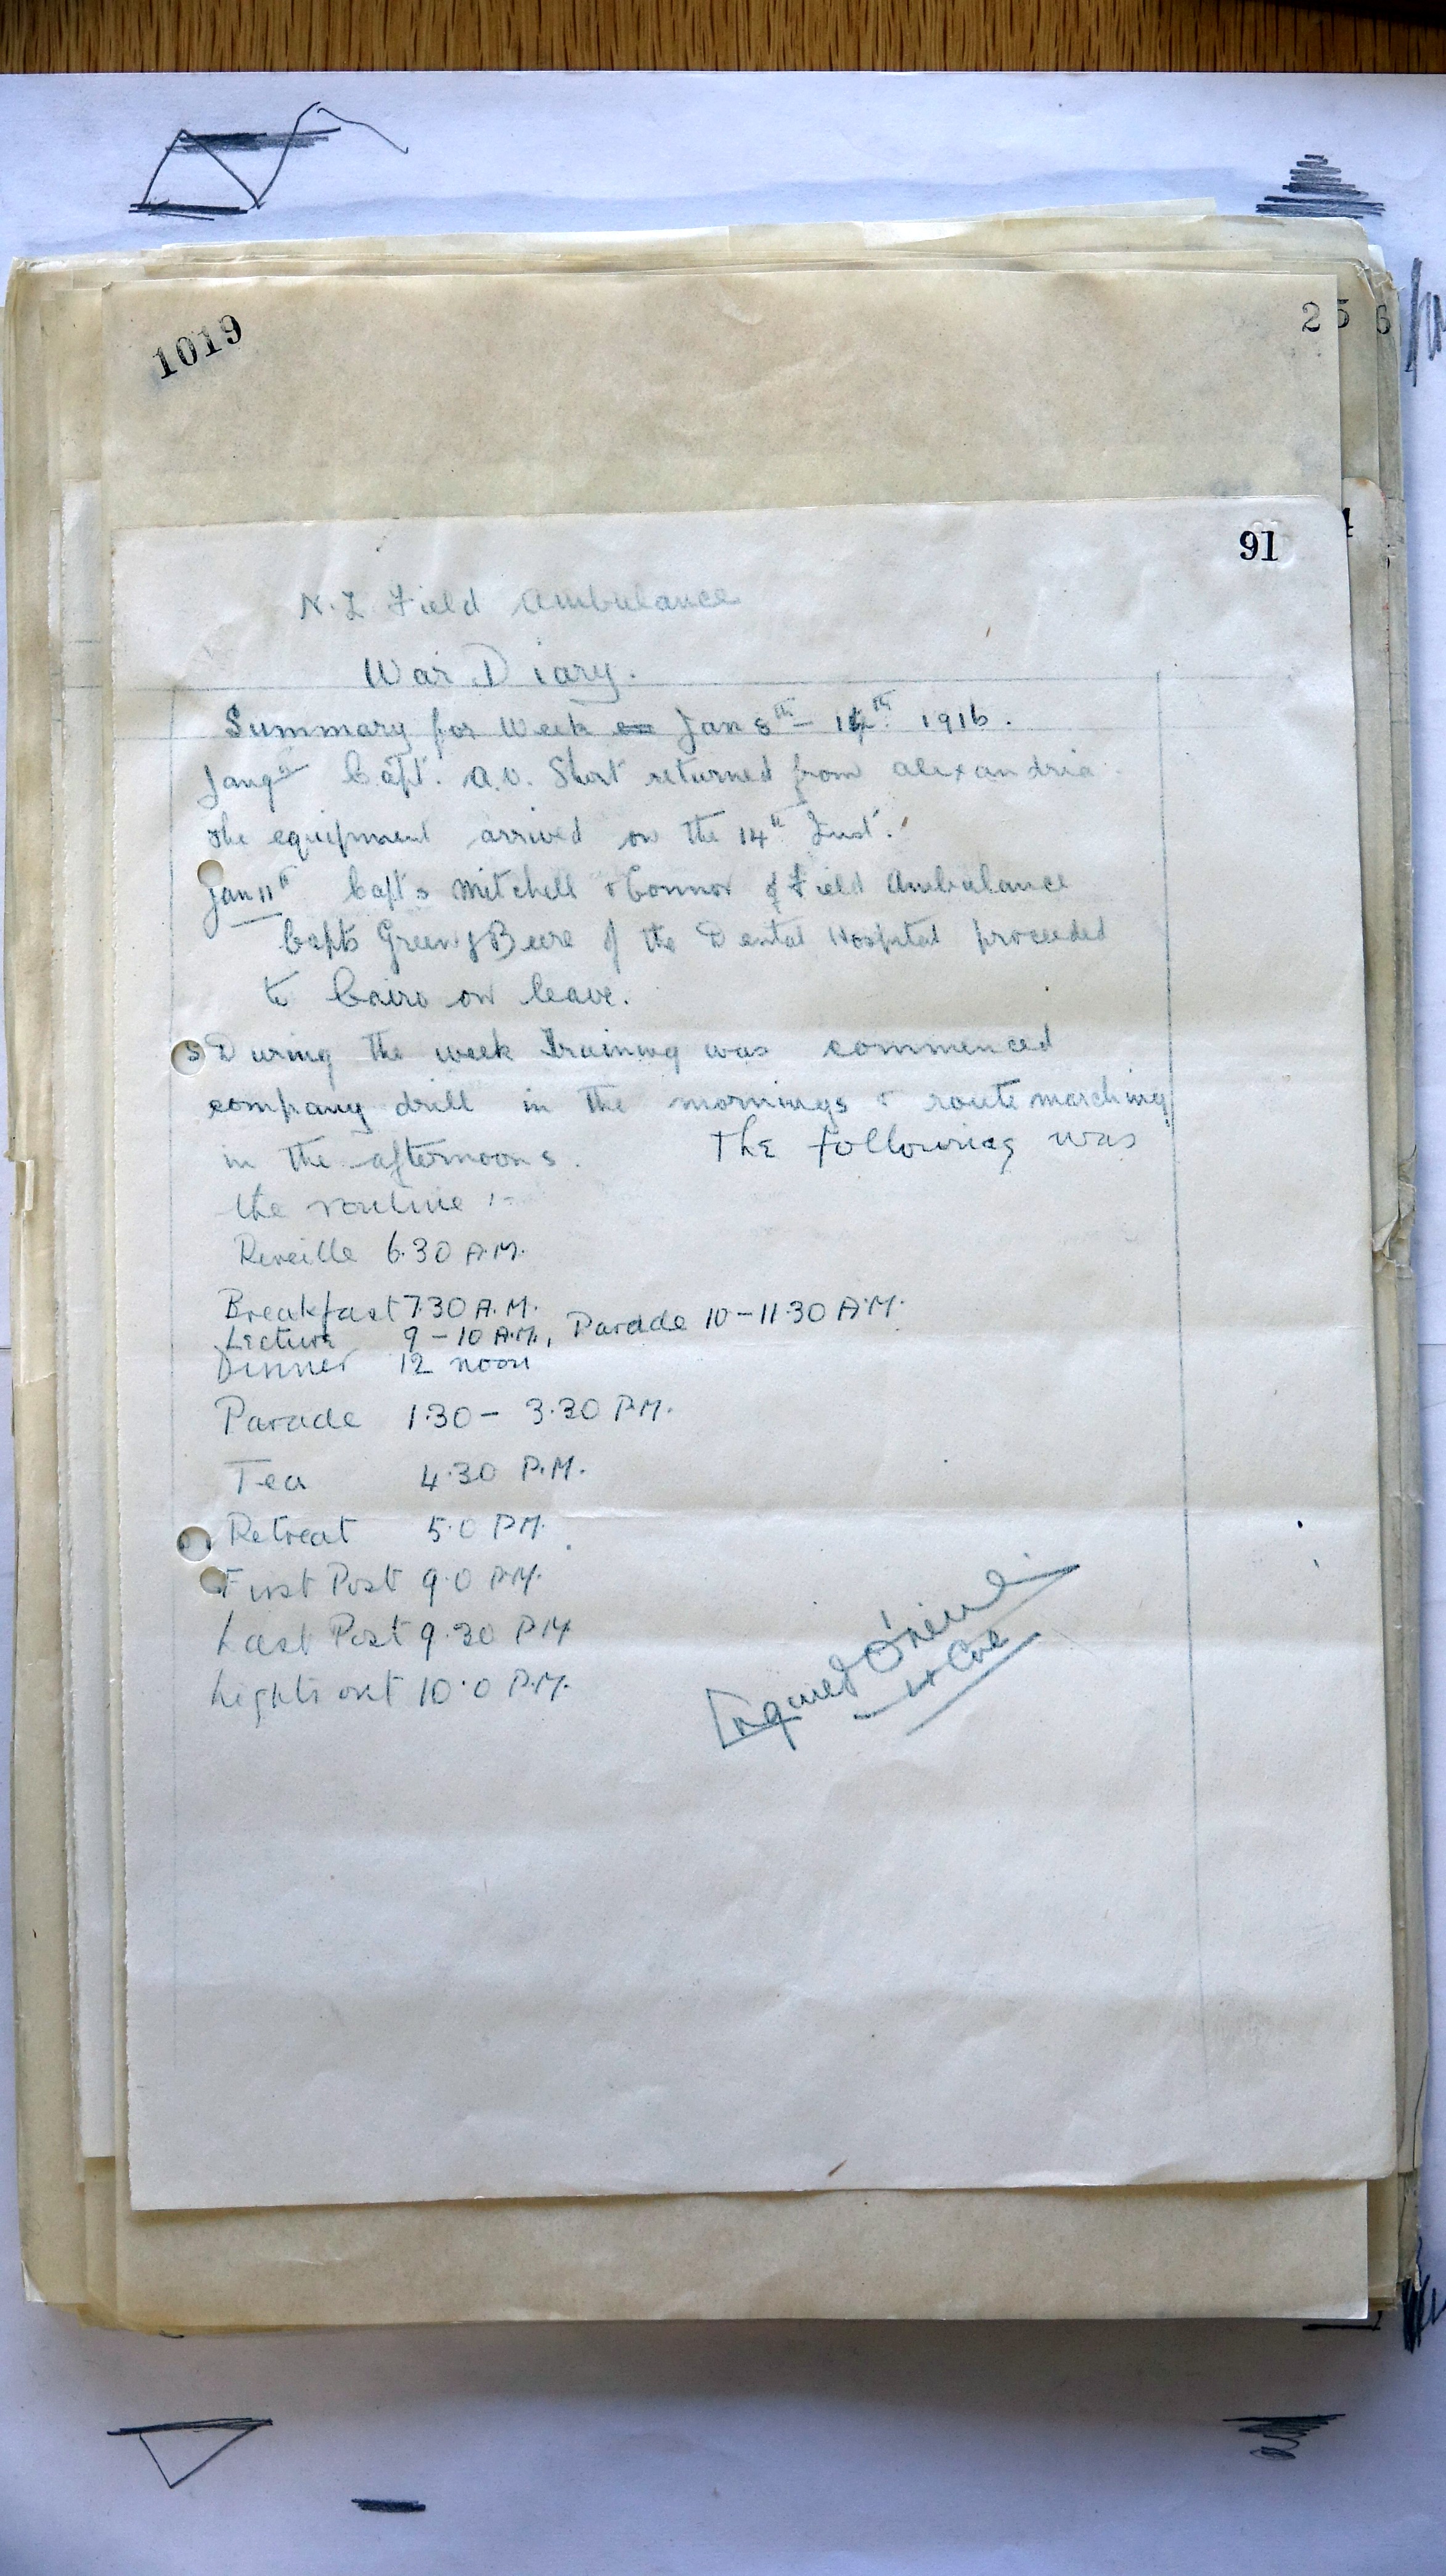 1019
256
91
N.Z. Field Ambulance
War Diary.
Summary for Week Jan 8th – 14th 1916.
Jan 9th Capt. A.V. Short returned from Alexandria
The equipment arrived on the 14th Inst.
Jan 11th Capts Mitchell & Connor of Field Ambulance
Capts Green & Beere of the Dental Hospital proceeded
to Cairo on leave.
During the week Training was commenced
company drill in the mornings & route marching
in the afternoons. The following was
the routine :-
Reveille 6.30 A.M.
Breakfast 7.30 A.M.
Lecture 9 – 10 A.M., Parade 10 – 11.30 A.M.
Dinner 12 noon
Parade 1.30 – 3.30 P.M.
Tea 4.30 P.M.
Retreat 5.0 P.M.
First Post 9.0 P.M.
Last Post 9.30 P.M
Lights out 10.0 P.M.